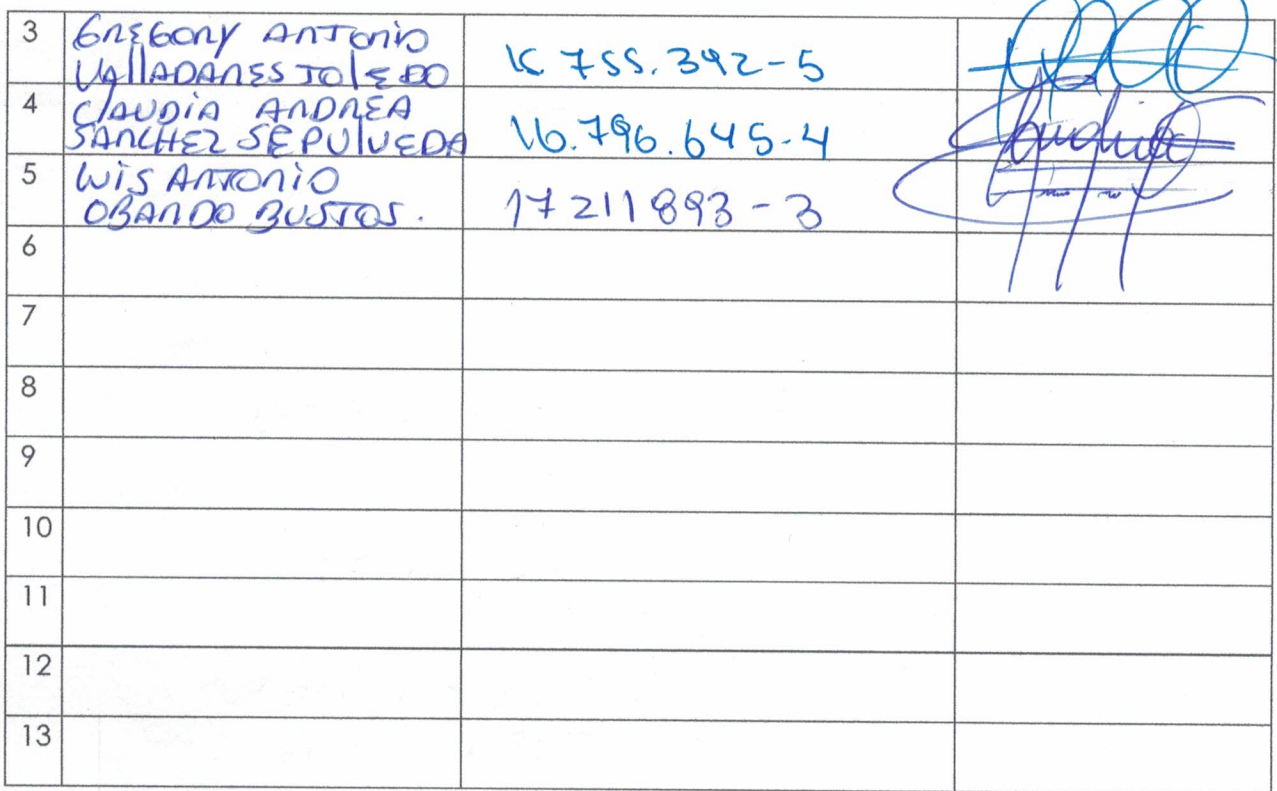 3 GREGORY ANTONIO
VALLADARES TOLEDO 15 755.392-5
4 CLAUDIA ANDREA
SANCHEZ SEPULVEDA 16.796.645-4
5 LUIS ANTONIO
OBANDO BUSTOS. 17211893-3
6
7
8
9
10
11
12
13